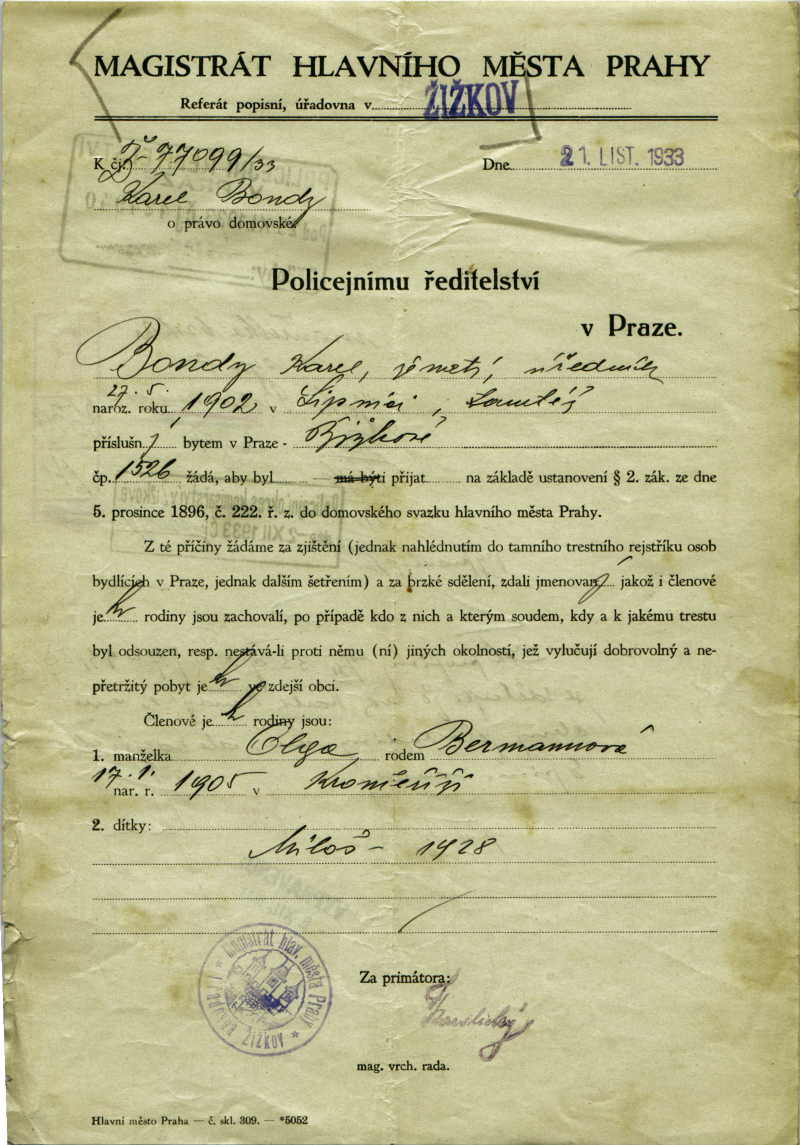 MAGISTRÁT HLAVNÍHO MĚSTA PRAHY
Referát popisní, úřadovna v ŽIŽKOV
K čj. Ž-77099/33
Dne 21. LIST. 1933
Karel Bondy
o právo domovské.
Policejnímu ředitelství
v Praze.
Bondy Karel, úředník
27. 5.
naroz. roku 1902 v Lipnici,
příslušný bytem v Praze -
čp. 1526 žádá, aby byl — má býti přijat na základě ustanovení § 2. zák. ze dne
5. prosince 1896, č. 222. ř. z. do domovského svazku hlavního města Prahy.
Z té příčiny žádáme za zjištění (jednak nahlédnutím do tamního trestního rejstříku osob
bydlících v Praze, jednak dalším šetřením) a za brzké sdělení, zdali jmenovaný jakož i členové
jeh rodiny jsou zachovalí, po případě kdo z nich a kterým soudem, kdy a k jakému trestu
byl odsouzen, resp. nestává-li proti němu (ní) jiných okolností, jež vylučují dobrovolný a ne-
přetržitý pobyt jeh ve zdejší obci.
Členové jeh rodiny jsou:
1. manželka Olga, rodem Bermannová
17. 1.
nar. r. 1905 v Kroměříži
2. dítky:
Miloš - 1928
Magistrát hlav. města Prahy
ŽIŽKOV
Za primátora:
mag. vrch. rada.
Hlavní město Praha — č. skl. 309. — *5052